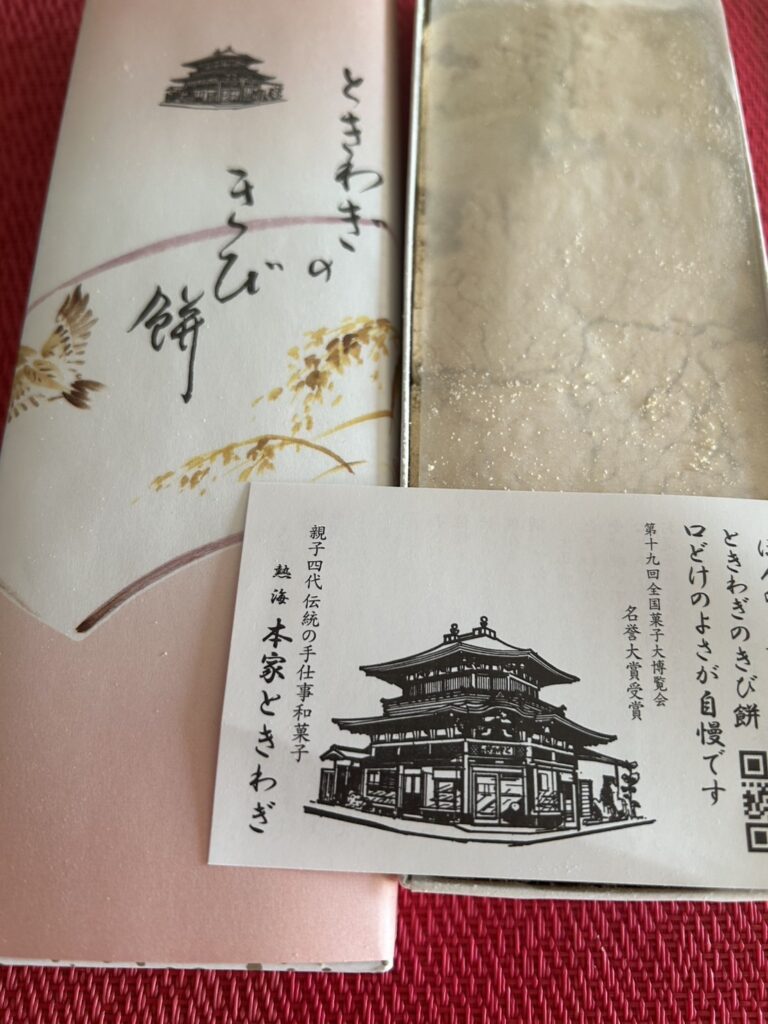 ときわぎの
きび
餅
ときわぎのきび餅
口どけのよさが自慢です
第十九回全国菓子大博覧会
名誉大賞受賞
親子四代 伝統の手仕事和菓子
熱海 本家ときわぎ